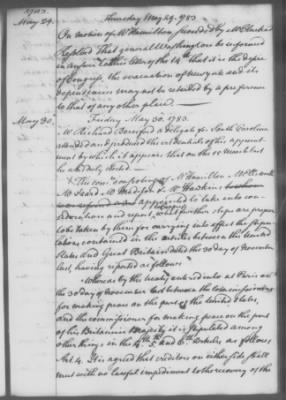 1783.
May 29.
Thursday May 29. 1783
On motion of Mr Hamilton, seconded by Mr Clarke
Resolved That general Washington be informed
in answer to his letter of the 14th that it is the desire
of Congress, the evacuation of New York and its
dependencies may not be retarded by a preference
to that of any other place.
May 30.
Friday May 30. 1783.
Mr Richard Beresford a delegate for South Carolina
attended and produced the credentials of his appoint
ment by which it appears that on the
he was duly elected.
The com. consisting of Mr Hamilton Mr
Mr Izard Mr Madison & Mr Hawkins
appointed to take into con-
sideration and report, what further steps are proper
to be taken by them for carrying into effect the stipu
lations contained in the articles between the United
States and Great Britain dated the 30 day of November
last, having reported as follows
"Whereas by the treaty entered into at Paris on
the 30 day of November last between the commissioners
for making peace on the part of the United States,
and the commissioner for making peace on the part
of his Britannic Majesty it is stipulated among
other things in the 4th 5 and 6th Articles as follows
Art. 4. It is agreed that creditors on either side shall
meet with no lawful impediment to the recovery of the